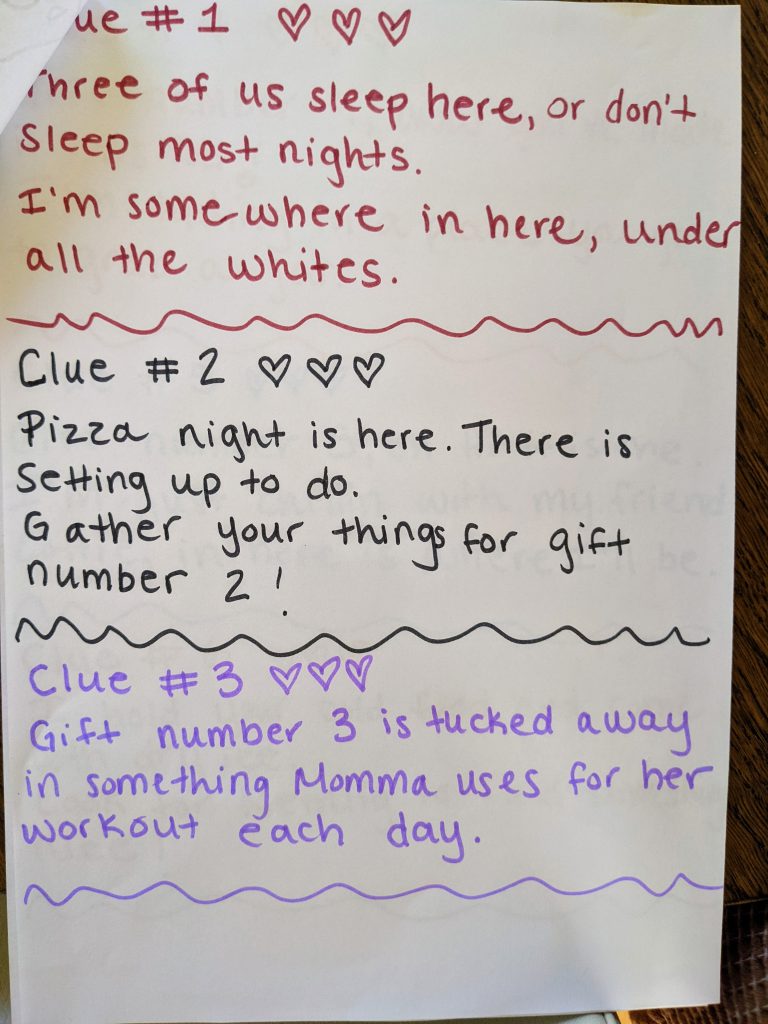 ue # 1 ♡ ♡ ♡
Three of us sleep here, or don't
sleep most nights.
I'm somewhere in here, under
all the whites.
Clue # 2 ♡ ♡ ♡
Pizza night is here. There is
setting up to do.
Gather your things for gift
number 2!
Clue # 3 ♡♡♡
Gift number 3 is tucked away
in something Momma uses for her
workout each day.